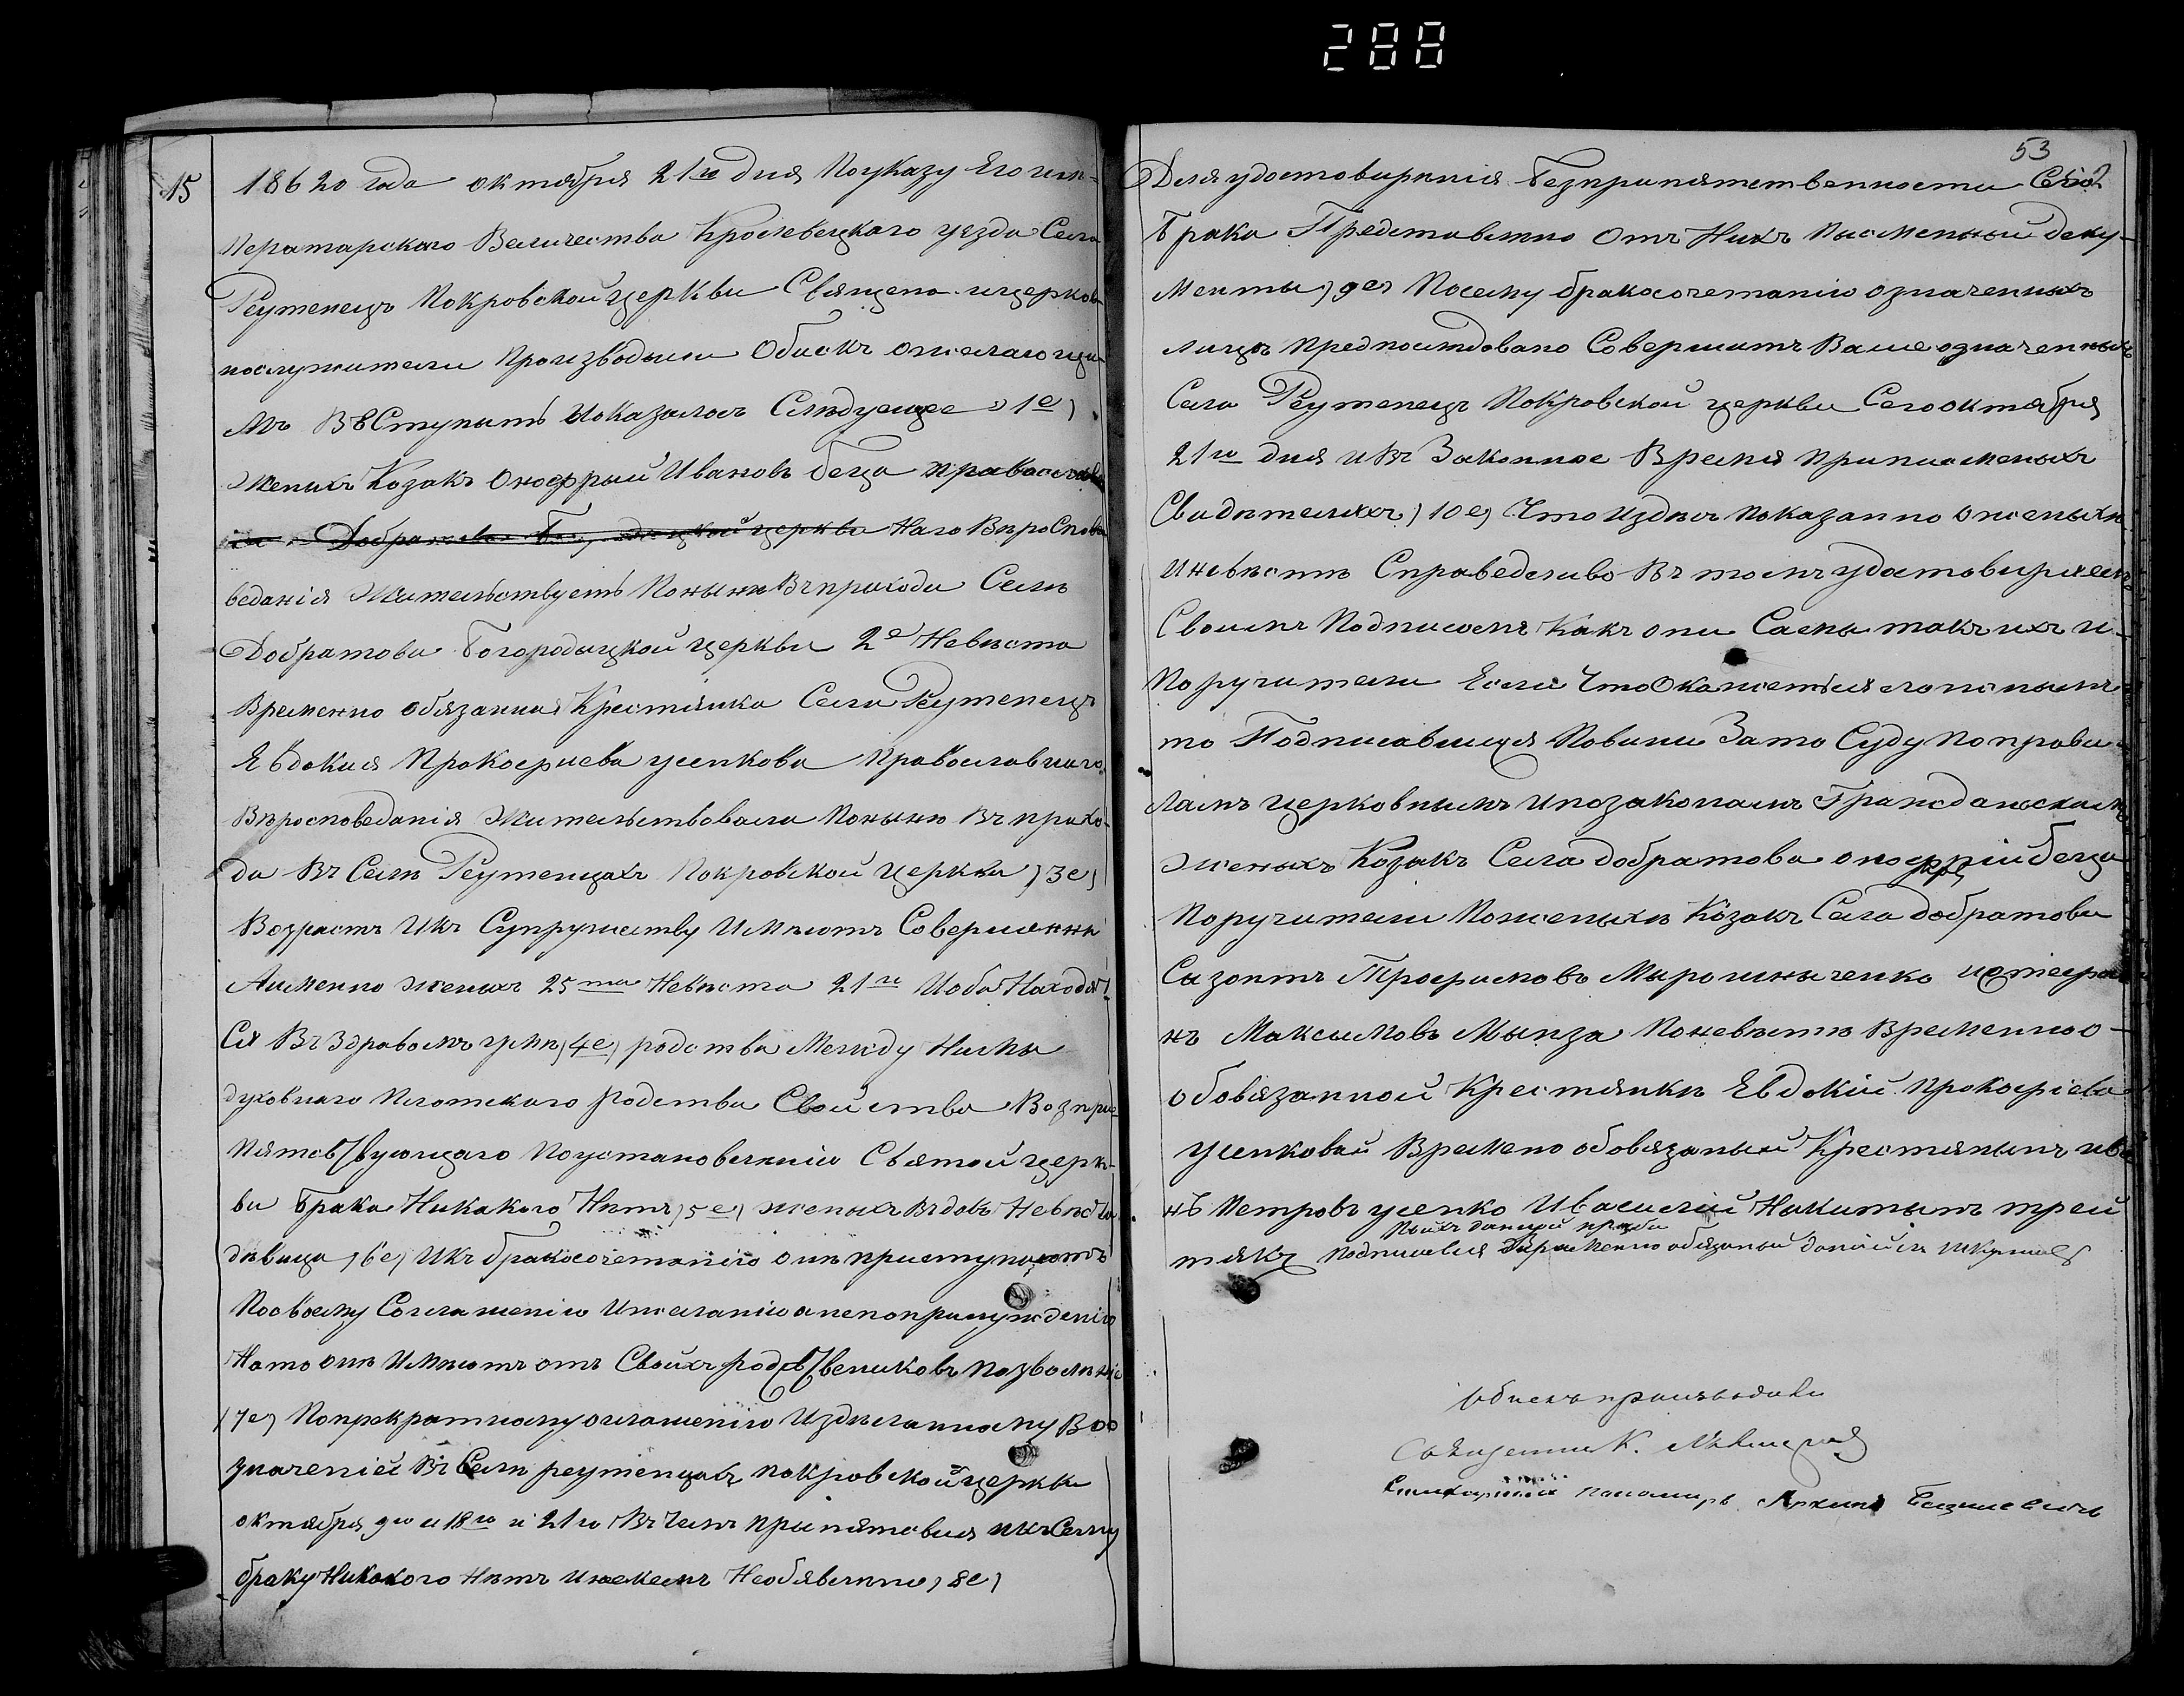 288
15
18620 года октября 21го дня По указу Его им-
Ператарскаго Величества Кролевецкаго уезда Села
Реутенецъ Покровской церкви Священо ицерков
послужители Производили Обискъ ожелающи
мъ ВѣСтупить Иоказалось Слѣдующее 1е)
Женихъ Козакъ Онофрый Ивановъ беца православ
Наго ВѣроСпов
веданія Жителствуетъ Понынѣ Вприходи Селѣ
Добратови Богородицкой церкви 2е Невѣста
Временно обязанная Крестянка Села Реутенецъ
Явдокия Прокофиева усенкова Православнаго
Вѣросповеданія Жителствовала Поныню Въ прихо-
ди Въ Селѣ Реутенцахъ Покровской церкви )3е)
Возрастъ Икъ Супружеству Имѣютъ Совершенни
Аименно женихъ 25ти Невѣста 21го Иоба Находят
Ся Въ Здравомъ умѣ) 4е) родства Между Ними
духовнаго Плотскаго родства Свойства Возпре-
Пятствующаго Поустановленнию Святой церк-
ви брака Никакого Нѣтъ) 5е) женихъ Вдовъ Невѣста
дѣвица )6е) Икъ бракосочетанію они приступаютъ
Посвоему Согламенію Ижеланию анепопринуждению
Нато они Имѣютъ отъ Своихъ родственниковъ Позволѣніе
)7е) Потрекратному огламенію Издѣланному Воо
значеній Въ Селѣ реутенцахъ покровской церкви
октября 9го и 18го и 21го Въ Чемъ припятсвия икъ Сему
браку Никокого Нѣтъ инекемъ Необявленно) 8е)
53
Деля удостовирения безприпятственности Сего
брака Представленно Отъ Нихъ Писменыи Доку-
Менты) 9е) Посему бракосочетанию означенныхъ
лицъ предпослѣдовано Совершитъ Вышеозначенныхъ
Села Реутенецъ Покровской церкви Сего октября
21го дня иВъ Законное Время приписменыхъ
Свидѣтеляхъ) 10е) Что издѣсь показанно оженыхѣ
Иневѣстѣ Справедливо Въ томъ удостовиряемъ
Своимъ Подписомъ Какъ они Самы такъ ихъ и
Поручители Если Что Окажется ложнымъ
то Подписавшися Повини Зато Суду Поправи-
ламъ церковнымъ ипозаконамъ Гражданскимъ
женыхъ Козакъ Села добратова онофрій беца
Поручители Поженыхѣ Козакъ Села Добратови
Сазонтъ Трофимовъ Мирошныченко истефа
нъ Максимовъ Мынза Поневѣстѣ Временноо-
обовязанной Крестянки Евдокіи Прокофіева
усенковой Времено обовязаный Крестянынъ ива
нъ Петровъ усенко Ивасилій Никитынъ трей
тякъ
Поихъ данной прозби
подписался Временно обязаный
обискъ производили
Священник